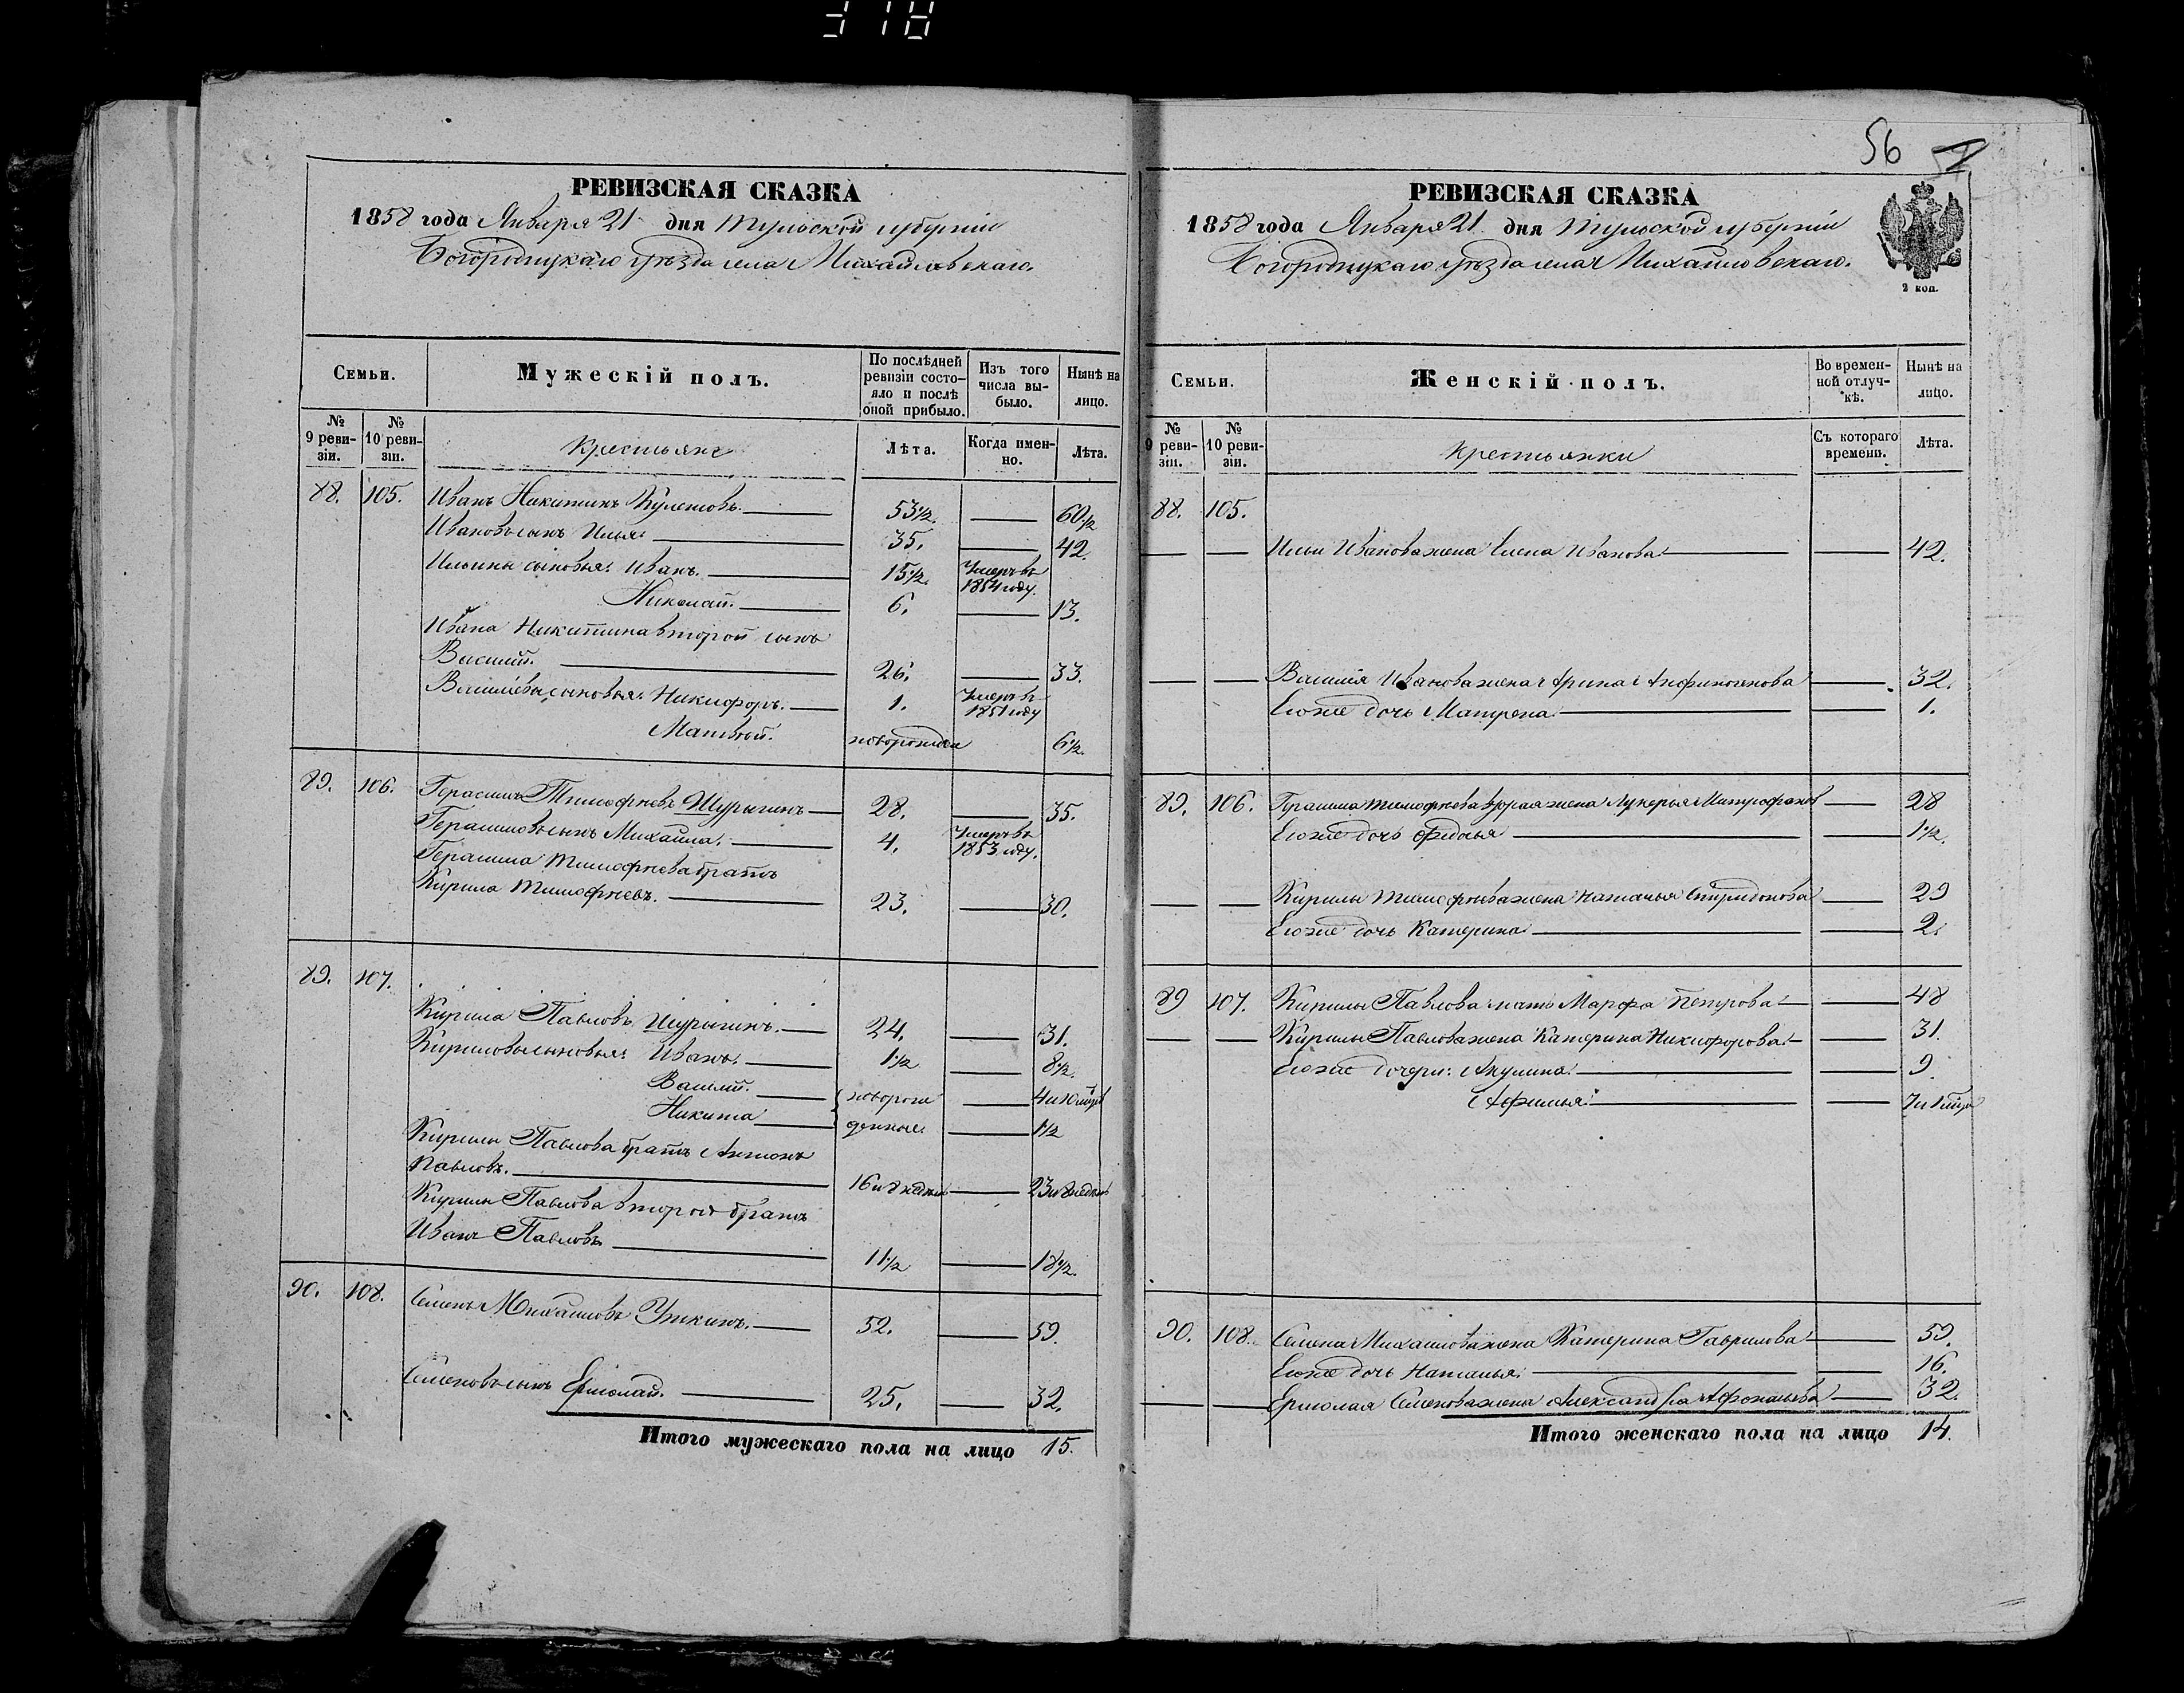 318
РЕВИЗСКАЯ СКАЗКА
1858 года Января 21 дня Тульской губерніи
Богородицкаго уѣзда села Михайловскаго.
Семьи.
Мужескій полъ.
По послѣдней ревизіи состояло и послѣ оной прибыло.
Изъ того числа выбыло.
Нынѣ на лицо.
№ 9 ревизіи.
№ 10 ревизіи.
Крестьяне
Лѣта.
Когда именно.
Лѣта.
88. 105. Иванъ Никитинъ Кулешовъ. 53½. 60½
Ивановъ сынъ Илья. 35. 42.
Ильины сыновья: Иванъ. 15½. Умеръ въ 1854 году.
Николай. 6. 13.
Ивана Никитина второй сынъ
Василій. 26. 33.
Васильевы сыновья: Никифоръ. 1. Умеръ въ 1851 году
Матвѣй. новорожден 6½.
89. 106. Герасимъ Тимофѣевъ Шурыгинъ 28. 35.
Герасимовъ сынъ Михайла. 4. Умеръ въ 1853 году.
Герасима Тимофѣева братъ
Кирила Тимофѣевъ. 23. 30.
89. 107.
Кирила Павловъ Шурыгинъ. 24. 31.
Кириловы сыновья: Иванъ. 1½ 8½.
Василій. новорож 4 и 10 мѣся
Никита денные. 1½
Кирилы Павлова братъ Антонъ
Павловъ. 16 и 8 недѣль 23 и 8 недѣль
Кирилы Павлова второй братъ
Иванъ Павловъ. 11½ 18½.
90. 108. Семенъ Михайловъ Уткинъ. 52. 59.
Семеновъ сынъ Ермолай. 25. 32.
Итого мужескаго пола на лицо 15.
56
РЕВИЗСКАЯ СКАЗКА
1858 года Января 21 дня Тульской губерніи
Богородицкаго уѣзда села Михайловскаго.
2 коп.
Семьи.
Женскій полъ.
Во временной отлучкѣ.
Нынѣ на лицо.
№ 9 ревизіи.
№ 10 ревизіи.
Крестьянки
Съ котораго времени.
Лѣта.
88. 105.
Ильи Иванова жена Елена Иванова 42.
Василія Иванова жена Арина Анфиногенова 32.
Его же дочь Матрена. 1.
89. 106. Герасима Тимофѣева вторая жена Лукерья Митрофанов 28
Его же дочь Федосья 1½.
Кирилы Тимофѣева жена Наталья Спиридонова 29
Его же дочь Катерина 2.
89 107. Кирилы Павлова мать Марфа Петрова 48
Кирилы Павлова жена Катерина Никифорова 31.
Его же дочери: Акулина 9
Афимья 7 и 1 мѣся
90. 108. Семена Михайлова жена Катерина Гаврилова 59.
Его же дочь Наталья. 16.
Ермолая Семенова жена Александра Афонасьева 32.
Итого женскаго пола на лицо 14.